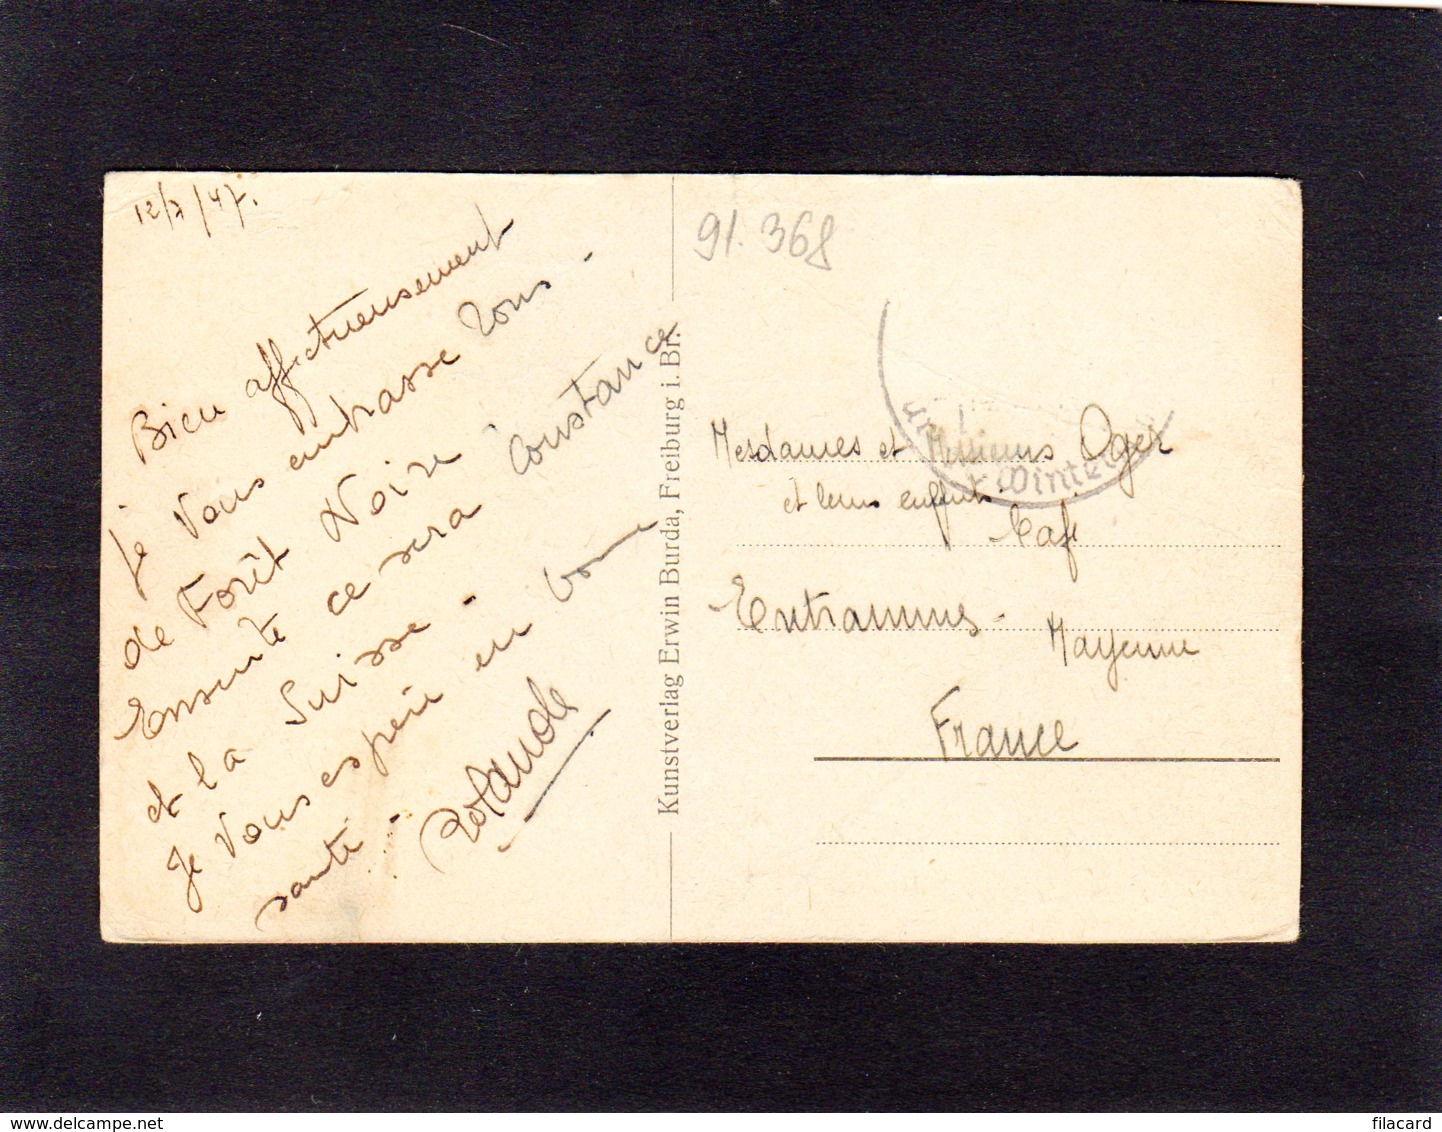 12/7/47.
Bien affectueusement
je vous embrasse tous -
de Forêt Noire
Ensuite ce sera Constance
et la Suisse -
Je vous espère en bonne
santé -
Rolande
Kunstverlag Erwin Burda, Freiburg i. Br.
91.368
Mesdames et Messieurs Oger
et leurs enfants
Café
Entrammes -
Mayenne
France
www.delcampe.net
filacard